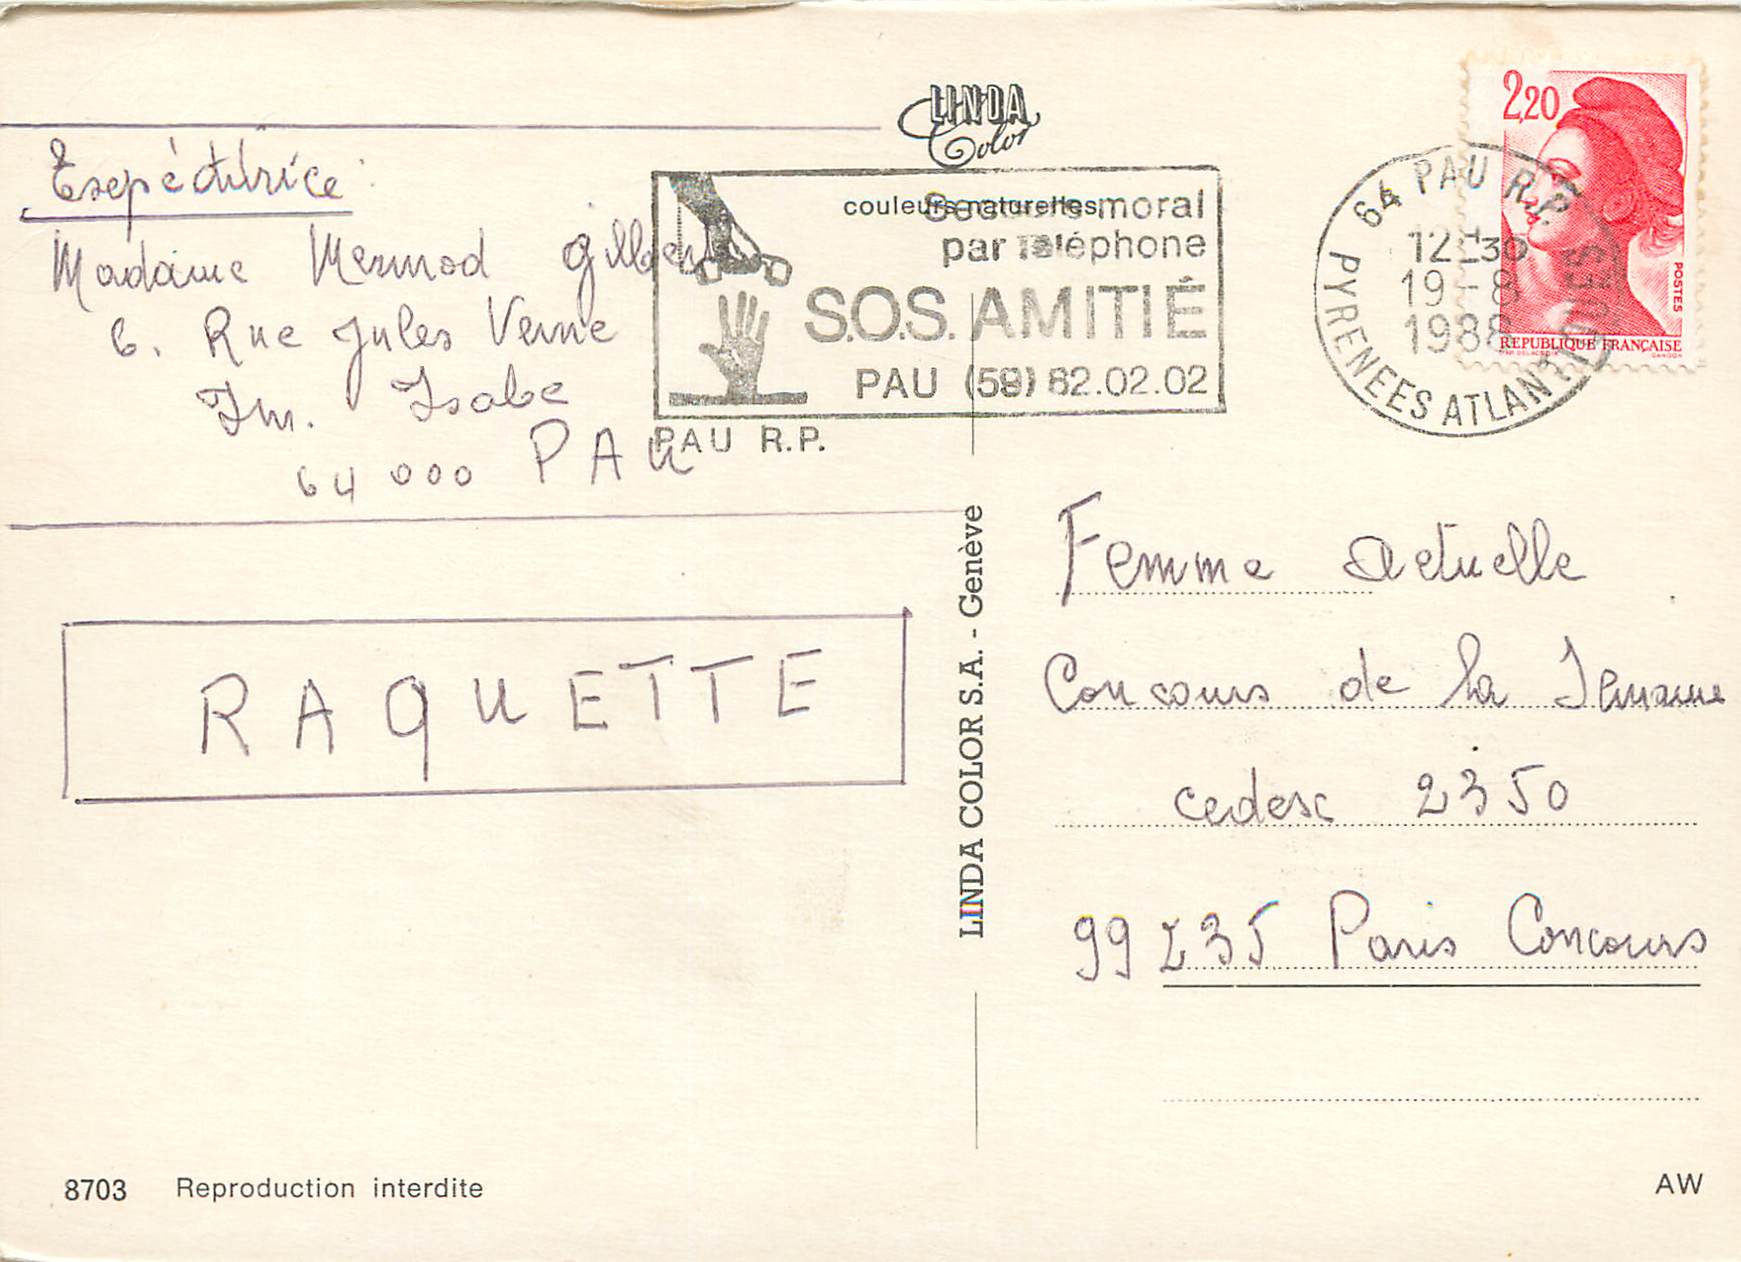 LINDA
Color
couleurs naturelles
Expéditrice
Madame Mermod Gilbert
6. Rue Jules Verne
Im. Isabe
64 000 PAU
Secours moral
par Téléphone
S.O.S. AMITIÉ
PAU (59) 82.02.02
PAU R.P.
64 PAU R.P.
12H30
19-8
1988
PYRENEES ATLANTIQUES
2,20
POSTES
REPUBLIQUE FRANÇAISE
RAQUETTE
LINDA COLOR S.A. - Genève
Femme actuelle
Concours de la Semaine
cedex 2350
99235 Paris Concours
8703 Reproduction interdite
AW